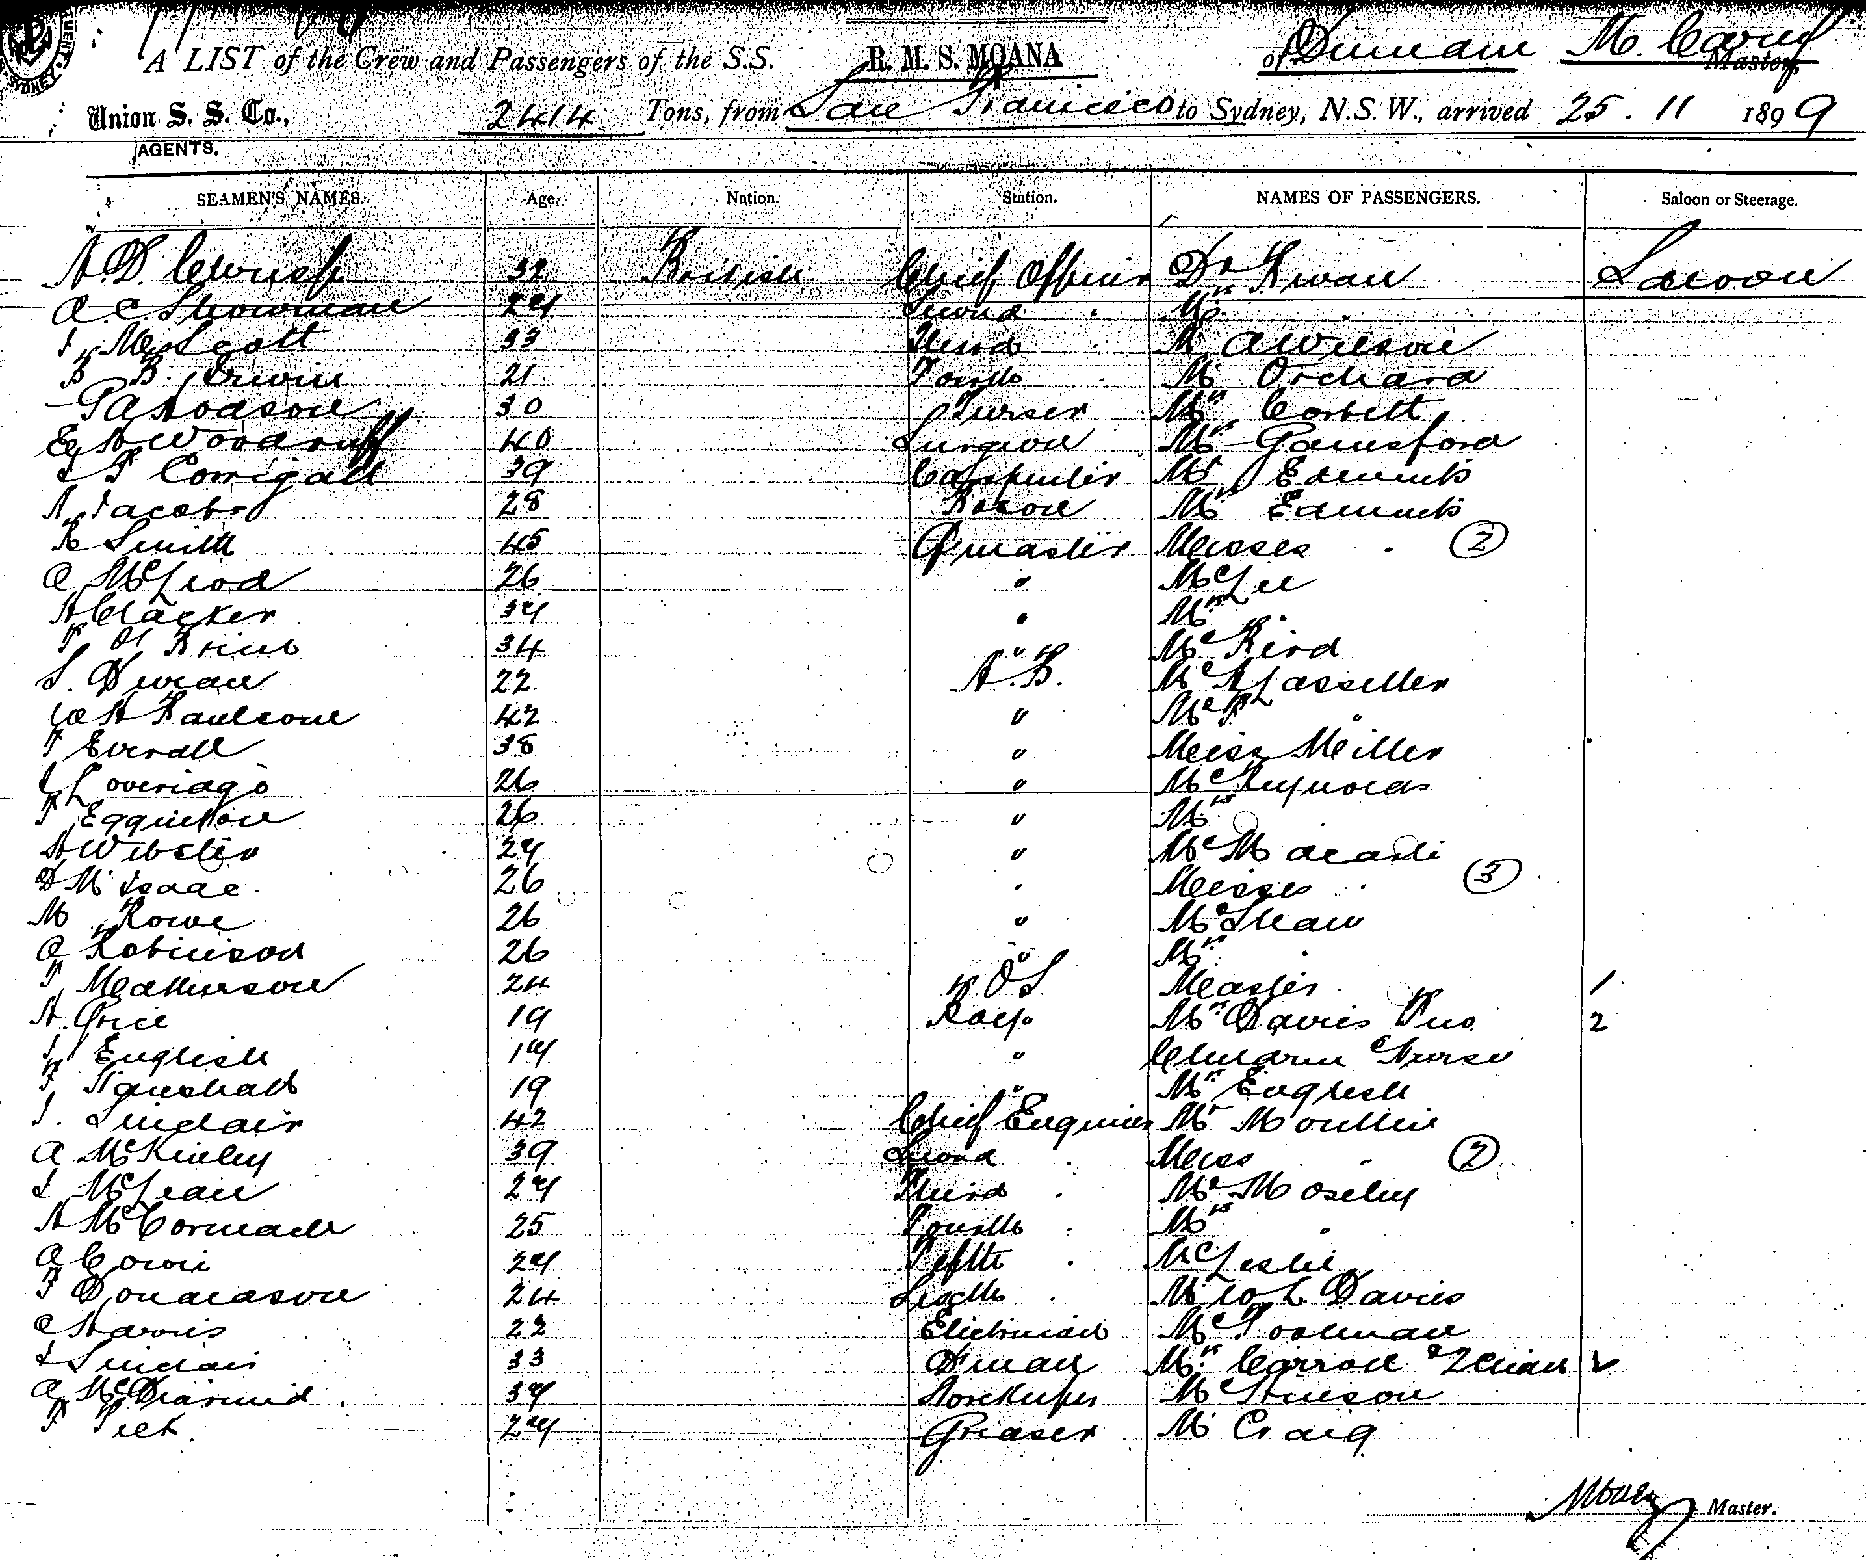 A LIST of the Crew and Passengers of the S.S. R. M. S. MOANA of M. Carey Master,
Union S. S. Co., 2414 Tons, from San Francisco to Sydney, N.S.W., arrived 25. 11 1899
AGENTS.
SEAMEN'S NAMES. Age. Nation. Station. NAMES OF PASSENGERS. Saloon or Steerage.
32 British Chief Officer Dr Kwan Saloon
A C Showman 29 Second " Mrs "
McScott 33 Third " Mr A Wilson
Irwin 21 Fourth " Mr Orchard
Hodson 30 Purser Mrs Corbett
E A Woodruff 40 Surgeon Mrs Gainsford
Corrigall 39 Carpenter Mr Edmunds
A Jacobs 28 Bosun Mrs Edmunds
R Smith 45 Qrmaster Misses " 2
A McLeod 26 " Mr Lee
A Clacker 39 " Mrs "
34 " Mr Bird
S. Duncan 22 A.B. Mr A Lasseller
42 " Mr "
Everall 38 " Miss Miller
Loveridge 26 " Mr Reynolds
Egginton 26 " Mrs "
A Webster 29 " Mr
D M Isaac 26 " Misses " 3
M Rowe 26 " Mr Shaw
A Robinson 26 " Mrs "
Mathieson 24 O.S Master " 1
A. Price 19 Boys Mrs Davies Two 2
English 19 " Children & Nurse
19 " Mrs English
J. Sinclair 42 Chief Engineer Mr Moullin
A McKinley 39 Second " Miss " 2
J McLean 29 Third " Mr Moseley
A McCormack 25 Fourth " Mrs "
A Cowie 29 Fifth " Mr Leslie
Donaldson 24 Sixth " Mr W L Davies
C Harris 22 Electrician Mr Poolman
J Sinclair 33 D'man Mrs Carroll &
A McDiarmid 39 Storekeeper Mr Stinson
29 Greaser Mr Craig
Master.